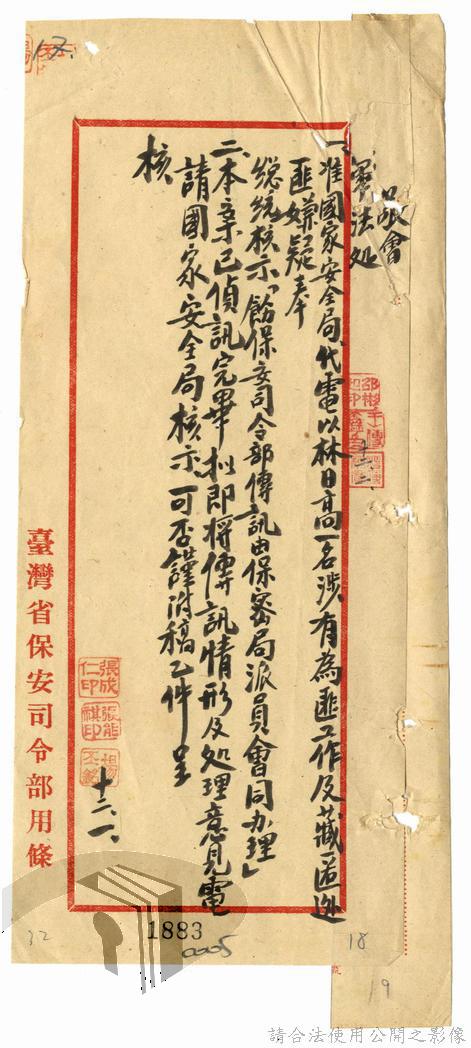 敬會
軍法処
一、准國家安全局代電以林日高一名涉有為匪工作及藏匿逃
匪嫌疑奉
總統核示「飭保安司令部傳訊由保密局派員會同办理」
二、本案已偵訊完畢拟即将傳訊情形及処理意見電
請國家安全局核示可否謹附稿乙件呈
核
十二、一、
十二、二、
張成仁印
張能祺印
臺灣省保安司令部用條
17.
1883
0005
32
18
19
請合法使用公開之影像